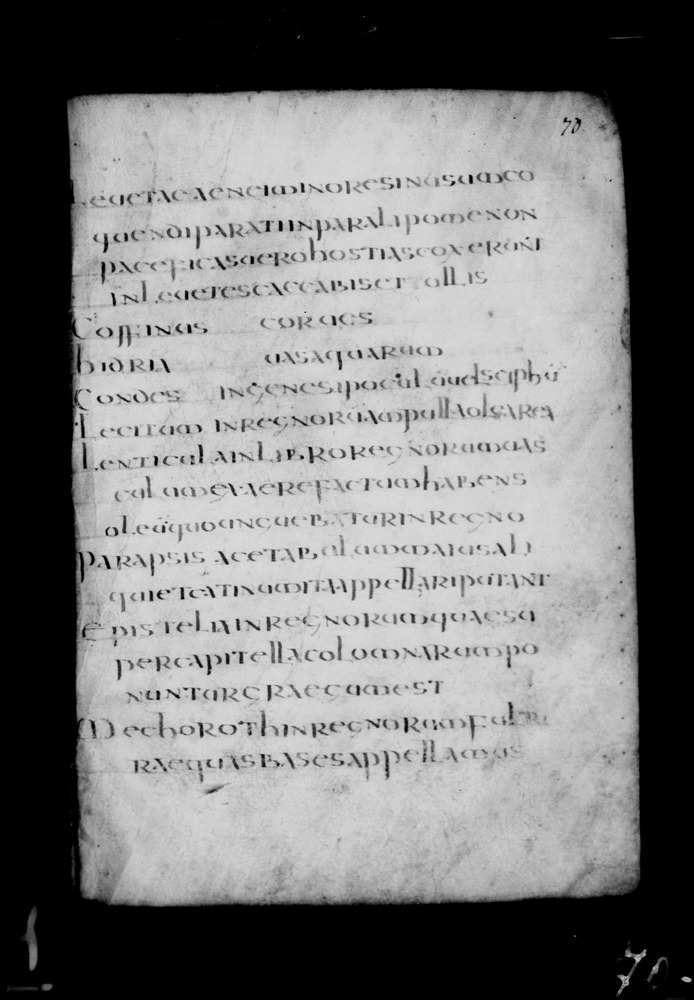 70
Lebetae aenei minores in usum co
quendi parati in paralipomenon
paceficas vero hostias coxerunt
in lebetes caccabis et ollis
Coffinus corues
hidria vasaquarum
Condes ingenes pocul vel sciphu
Lecitum in regnorum ampulla olearea
Lenticula in libro regnorum vas
culum ex aere factum habens
oleu quo unguebatur in regno
Parapsis acetabulum maius ali
qui et catinum ita appellari putant
Epistelia in regnorum quae su
per capitella columnarum po
nuntur graecum est
Mechoroth in regnorum fultu
rae quas bases appellamus
70.